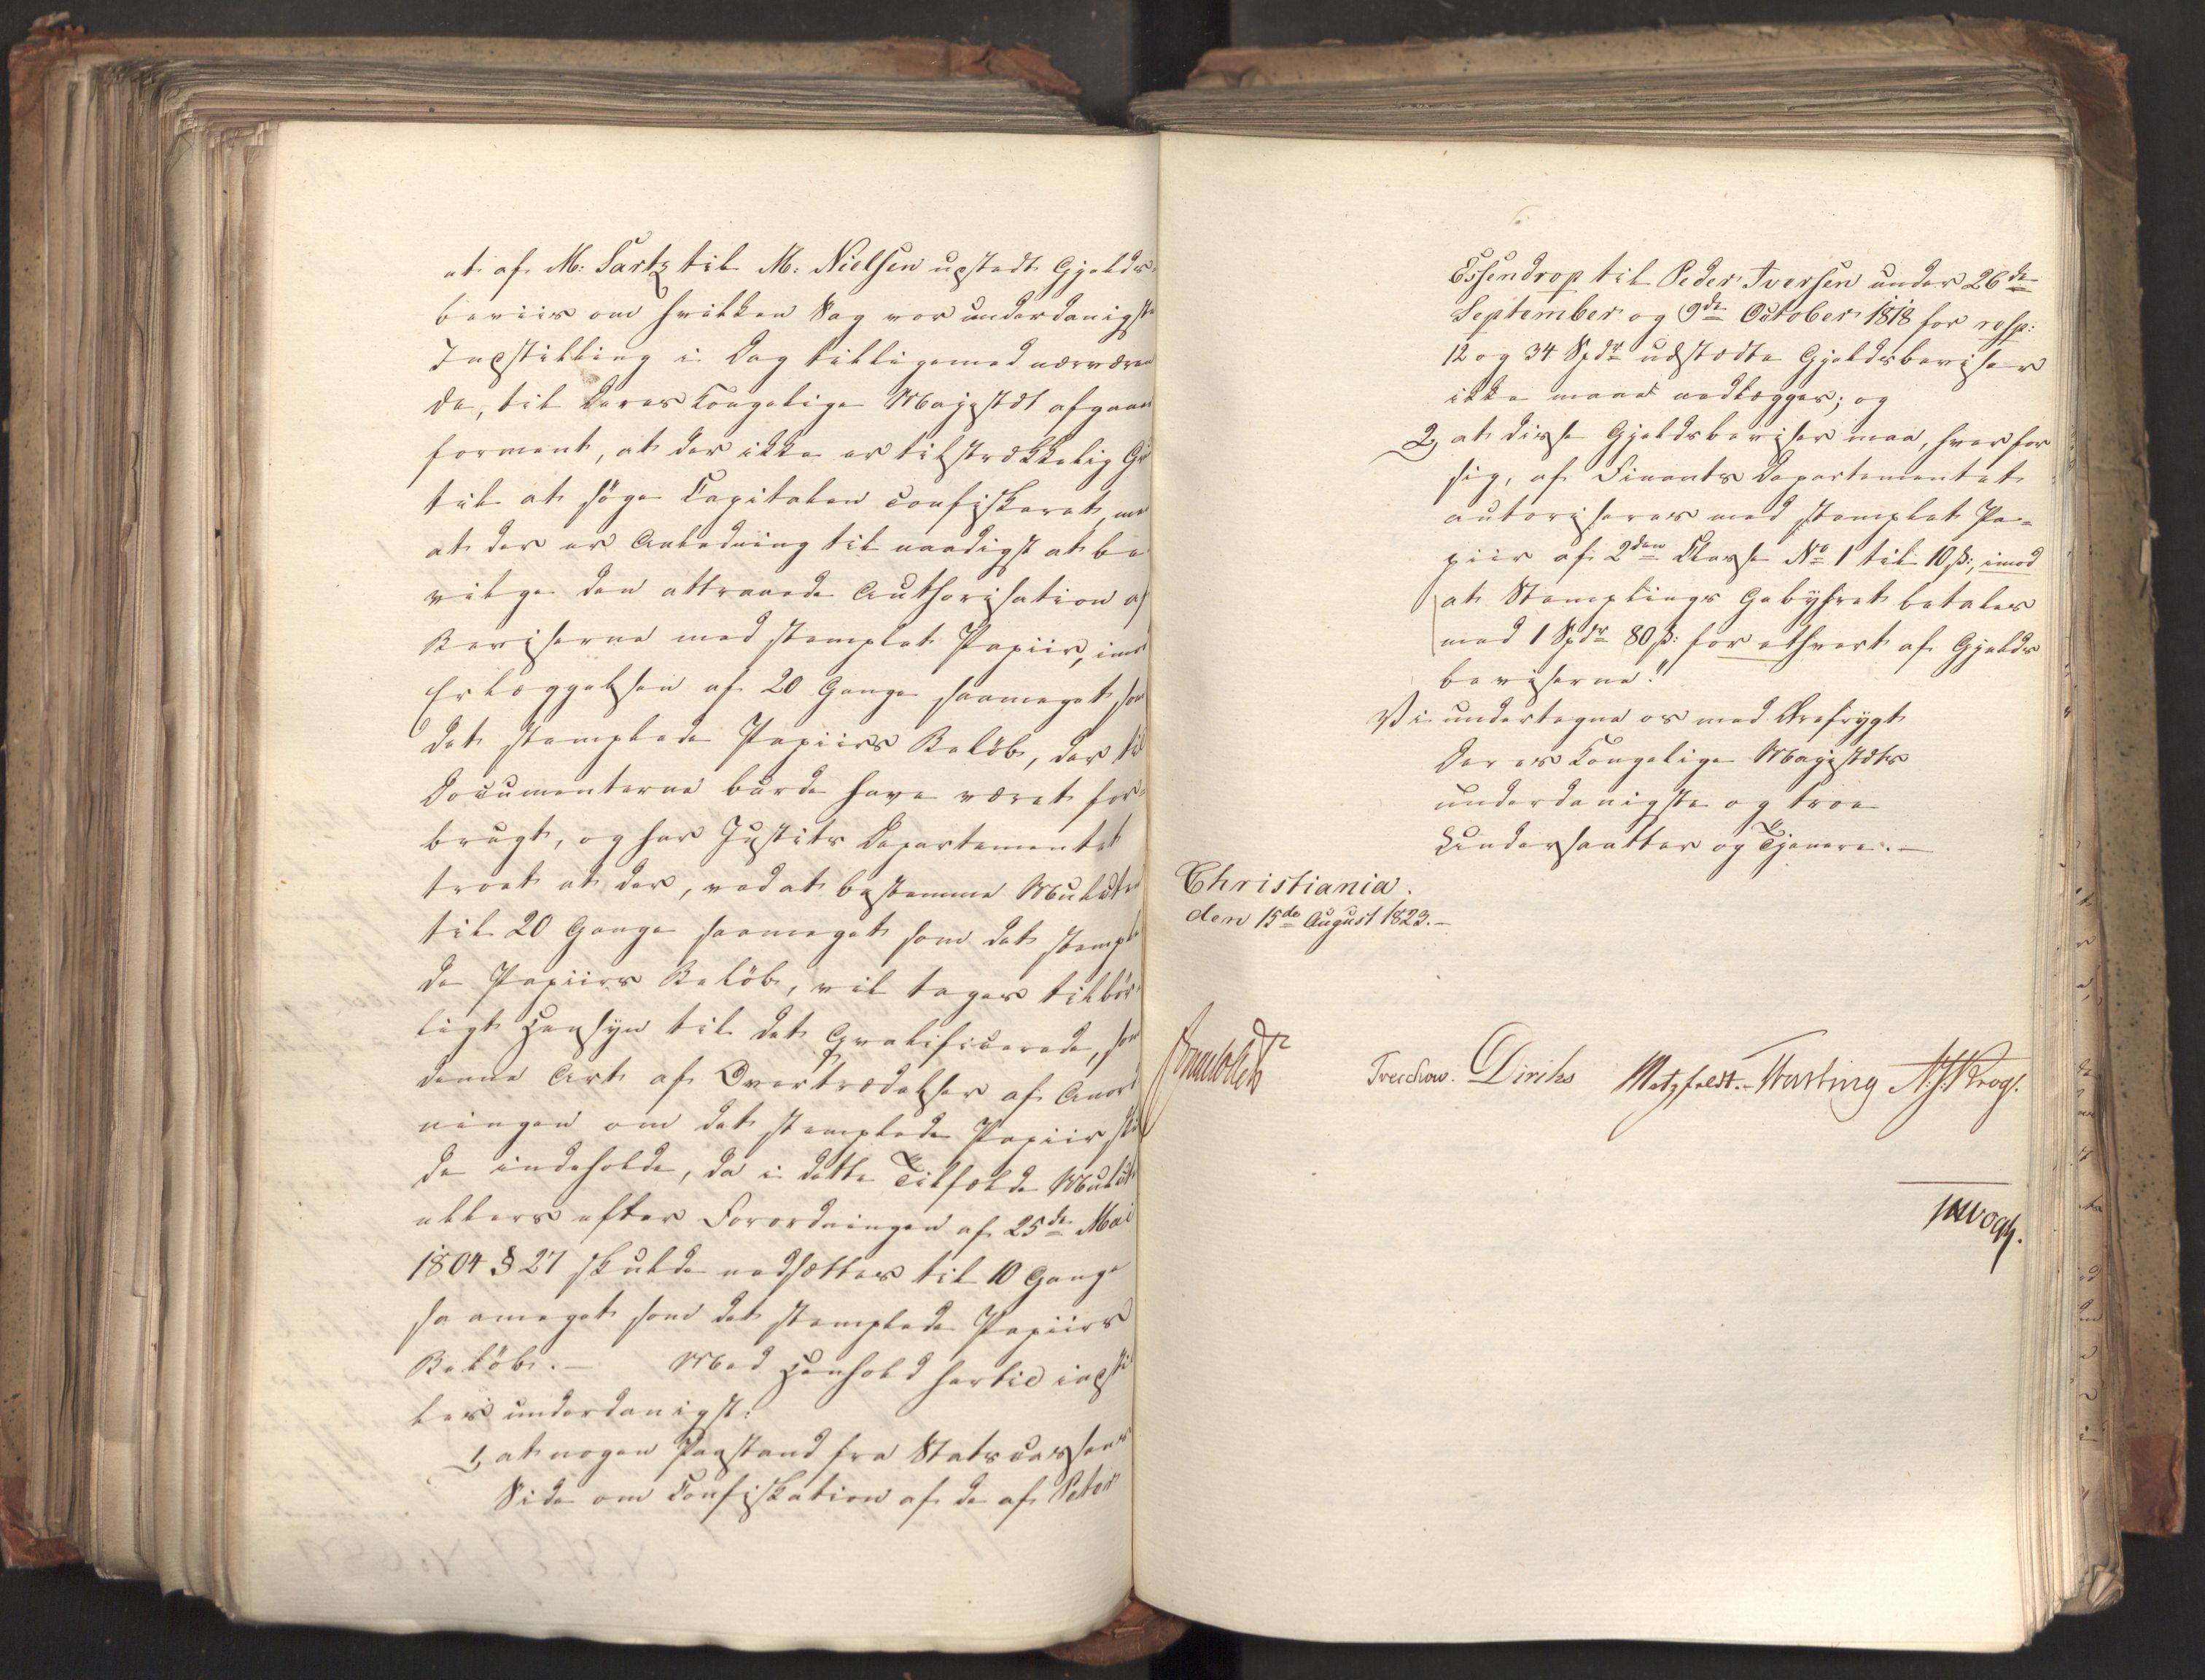 et af M: Sartz til M: Nielsen udstedt Gjelds-
beviis om hvilken Sag vor underdanigste
Indstilling i Dag tilligemed nærværen
de, til Deres Kongelige Majestæt afgaaer
forment, at der ikke er tilstrækkelig Gr
til at søge Capitalen confiskeret, me
at der er Anledning til naadigst at be
vilge den attraaede Authorisation af
Beviserne med stemplet Papiir, imod
Erlæggelsen af 20 Gange saameget som
det stemplede Papiirs Beløb, der til
Documenterne burde have været for-
brugt, og har Justits Departementet
troet at der, ved at bestemme Mulcten
til 20 Gange saameget som det stemple
de Papiirs Beløb, vil tages tilbør-
ligt Hensyn til det Qvalificerede, som
denne Art af Overtrædelser af Anord
ningen om det stemplede Papiir
de indeholde, da i dette Tilfælde Mulct
ellers efter Forordningen af 25de Mai
1804 § 27 skulde nedsættes til 10 Gange
saameget som det stemplede Papiirs
Beløb. — Med Henhold hertil indstil
les underdanigst:
1, at nogen Paastand fra Statscassens
Side om Confiskation af de af Peter
Essendrop til Peder Iversen under 26de
September og 9de October 1818 for resp:
12 og 34 Spdr udstædte Gjeldsbeviser
ikke maae nedlægges; og
2, at disse Gjeldsbeviser maa, hver for
sig, af Finants Departementet
autoriseres med stemplet Pa-
piir af 2den Classe No 1 til 10 ß:, imod
at Stemplings Gebyhret betales
med 1 Spdr 80 ß: for ethvert af Gjelds
beviserne."
Vi undertegne os med Ærefrygt
Deres Kongelige Majestæts
underdanigste og troe
Undersaatter og Tjenere. —
Christiania.
den 15de August 1823. —
Treschow. Diriks Motzfeldt. N. J. Krog.
Vogt.